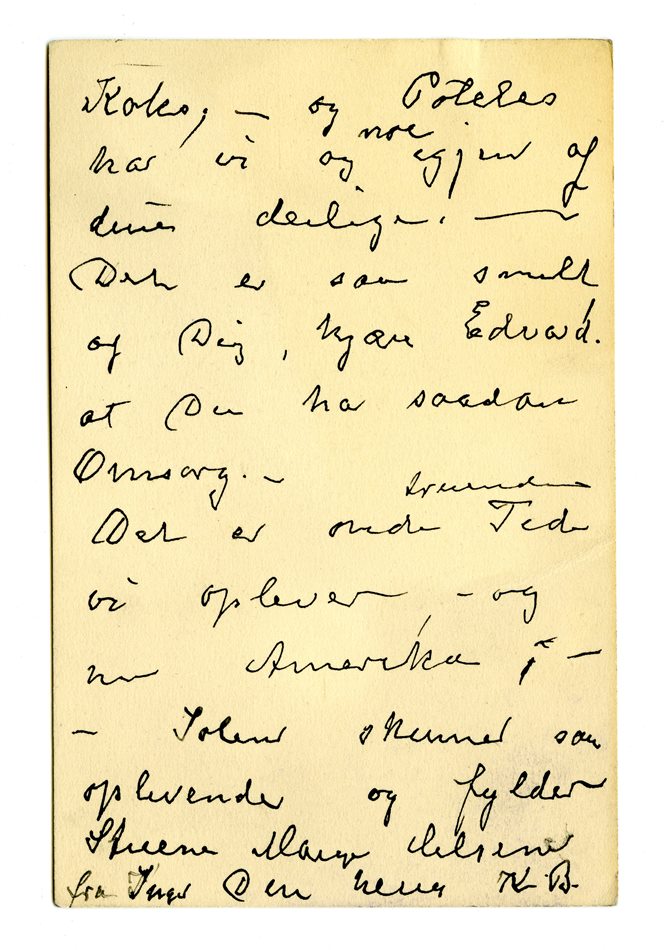 Koks, – og Poteter
har vi og noe igjen af
dine deilige. —
Det er saa snilt
af Dig, kjære Edvard.
at Du har saadan
Omsorg. –
Det er onde truende Tide
vi oplever, – og
nu Amerika –
– Solen skinner saa
oplivender og fylder
Stuene Mange Hilsene
fra Inger Din K. B.